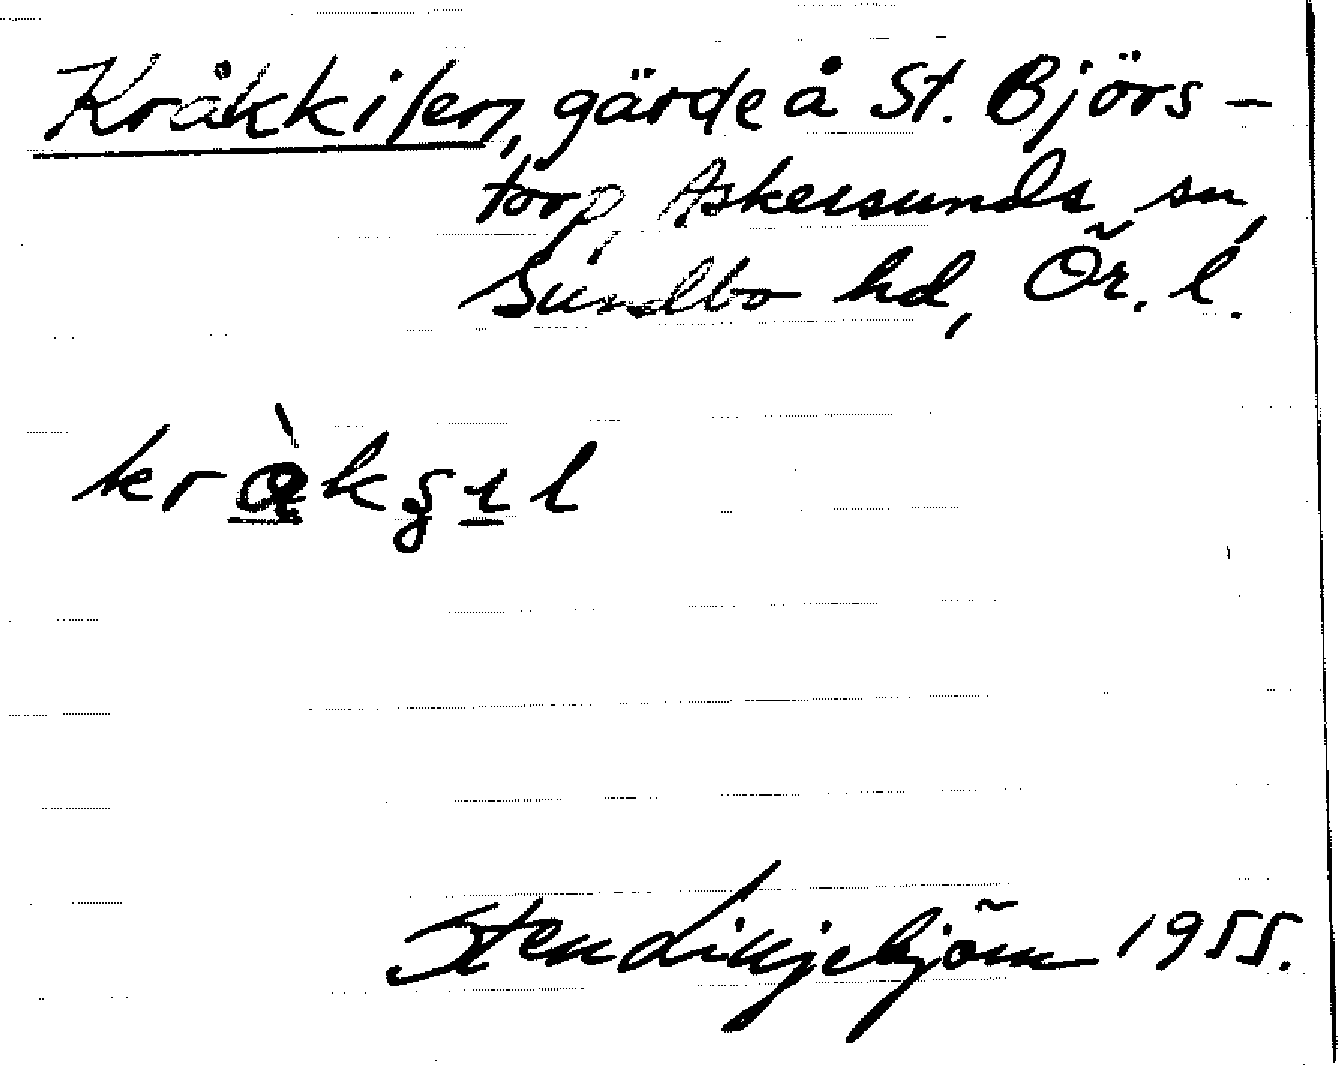 Kråkkilen, gärde å St. Björs-
torp, Askersunds sn,
Sundbo hd, Ör. l.
kràkʂıl
Sten Liljebjörn 1955.